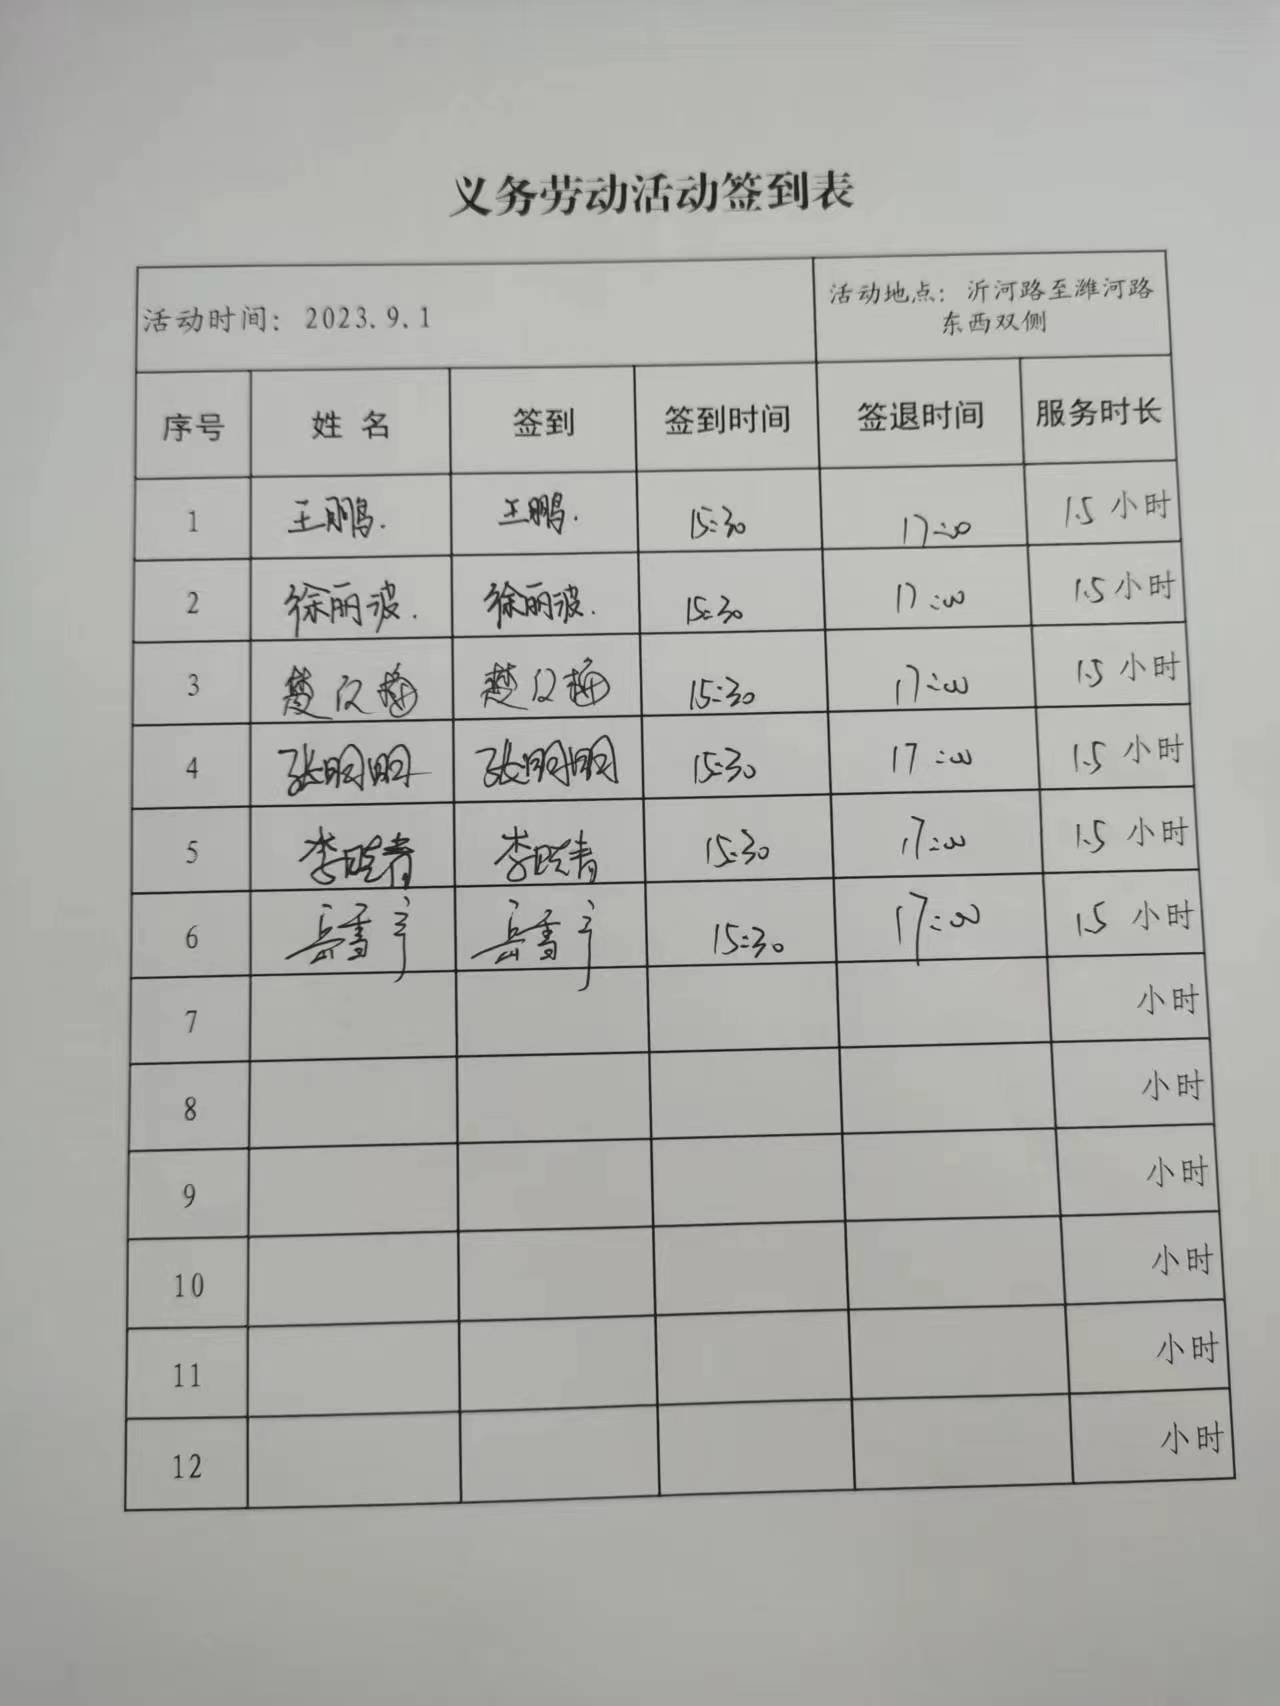 义务劳动活动签到表
活动时间：2023.9.1
活动地点：沂河路至潍河路
东西双侧
序号 姓名 签到 签到时间 签退时间 服务时长
1 王鹏. 王鹏. 15:30 17:00 1.5 小时
2 徐丽波. 徐丽波. 15:30 17:00 1.5 小时
3 15:30 17:00 1.5 小时
4 张明明 张明明 15:30 17:00 1.5 小时
5 李晓青 李晓青 15:30 17:00 1.5 小时
6 岳雪宁 岳雪宁 15:30 17:00 1.5 小时
7 小时
8 小时
9 小时
10 小时
11 小时
12 小时